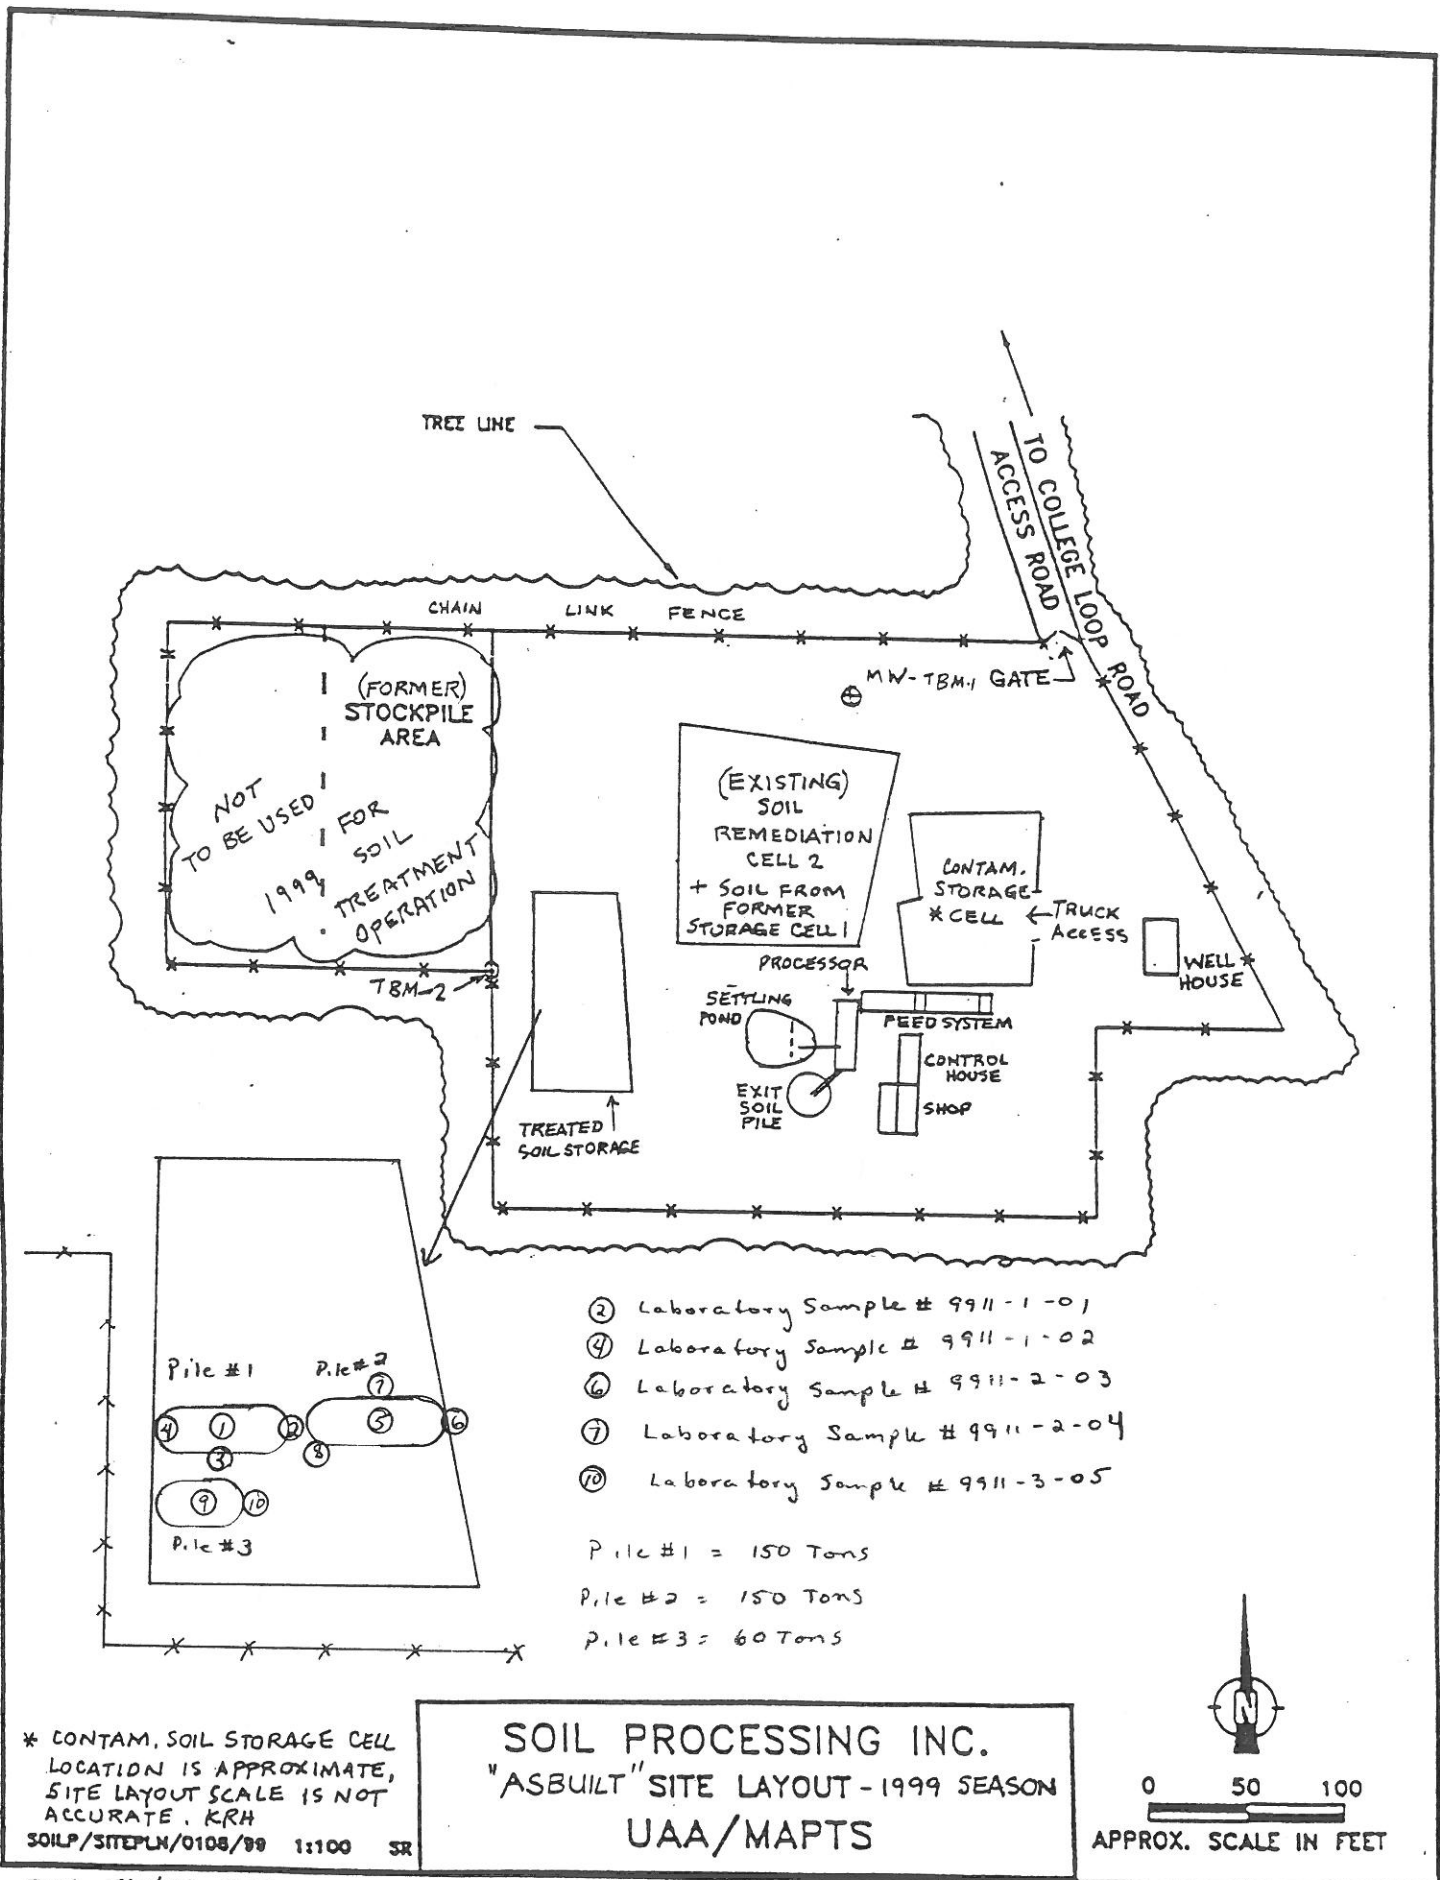 TREE LINE
TO COLLEGE LOOP ROAD
ACCESS ROAD
CHAIN LINK FENCE
MW-TBM-1 GATE
(FORMER)
STOCKPILE
AREA
NOT
TO BE USED
FOR
1999 SOIL
TREATMENT
OPERATION
(EXISTING)
SOIL
REMEDIATION
CELL 2
+ SOIL FROM
FORMER
STORAGE CELL 1
CONTAM.
STORAGE
* CELL
TRUCK
ACCESS
WELL
HOUSE
TBM-2
PROCESSOR
SETTLING
POND
FEED SYSTEM
CONTROL
HOUSE
EXIT
SOIL
PILE
SHOP
TREATED
SOIL STORAGE
2 Laboratory Sample # 9911-1-01
4 Laboratory Sample # 9911-1-02
6 Laboratory Sample # 9911-2-03
7 Laboratory Sample # 9911-2-04
10 Laboratory Sample # 9911-3-05
Pile #1
Pile #2
7
4 1 2
5 6
3 8
9 10
Pile #3
Pile #1 = 150 Tons
Pile #2 = 150 Tons
Pile #3 = 60 Tons
* CONTAM. SOIL STORAGE CELL
LOCATION IS APPROXIMATE,
SITE LAYOUT SCALE IS NOT
ACCURATE. KRH
SOILP/SITEPLN/0108/99 1:100 SR
SOIL PROCESSING INC.
"ASBUILT" SITE LAYOUT - 1999 SEASON
UAA/MAPTS
0 50 100
APPROX. SCALE IN FEET